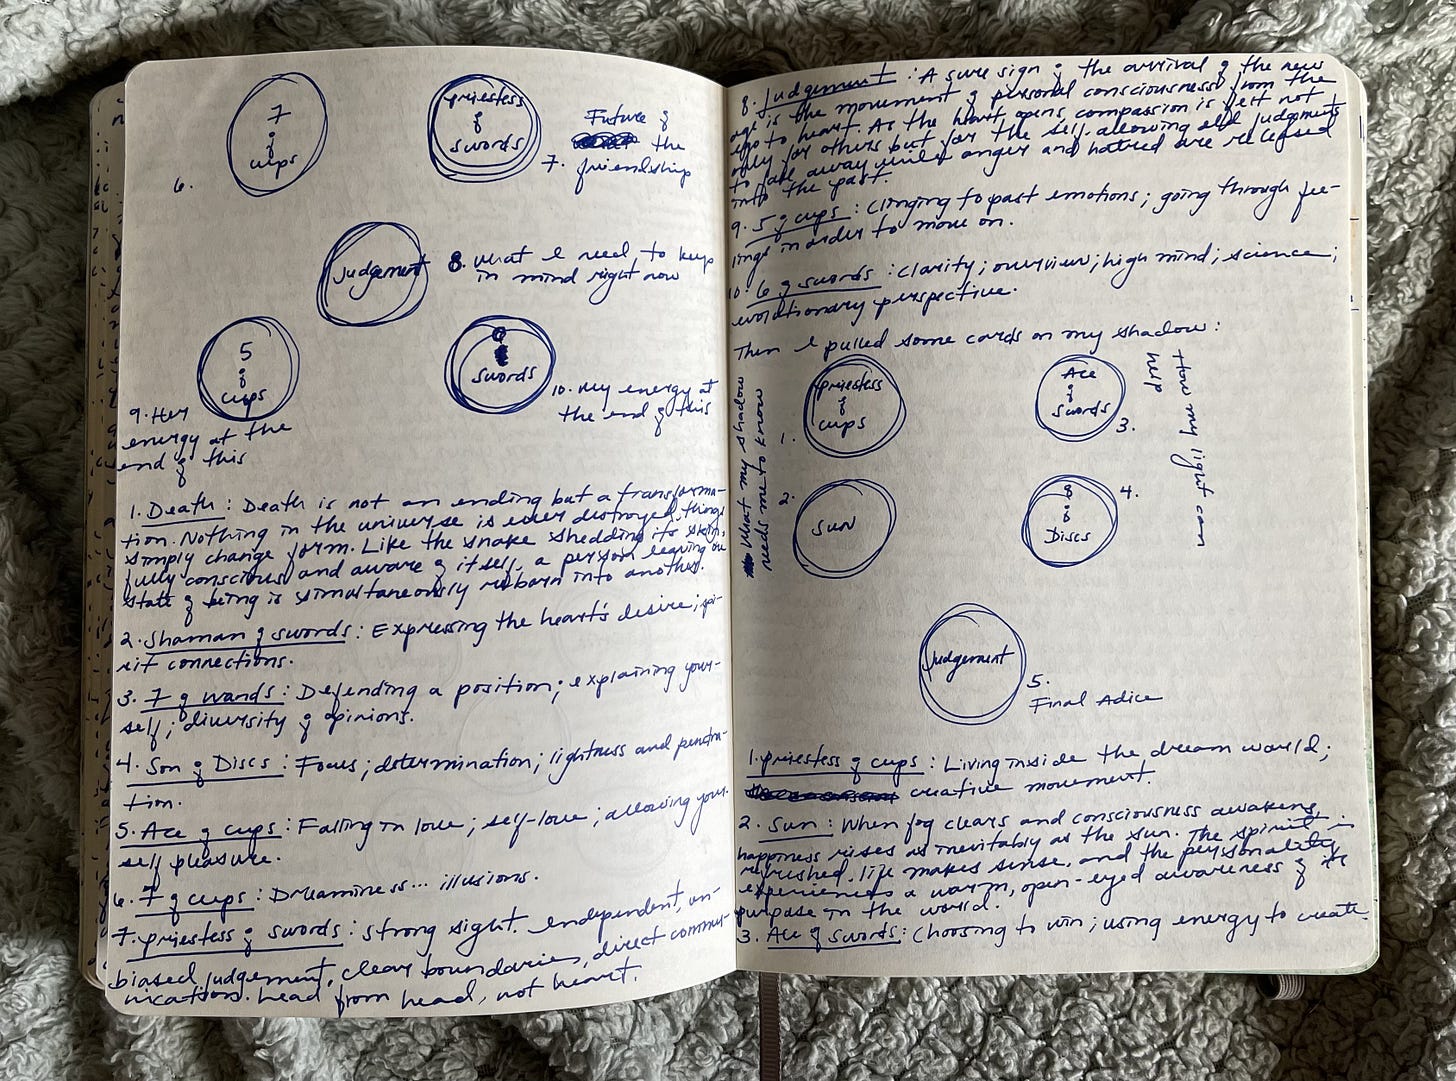 7
of
cups
6.
priestess
of
swords
7.
Future of
the
friendship
Judgement
8. What I need to keep
in mind right now
5
of
cups
9. Her
energy at the
end of this
swords
10. My energy at
the end of this
1. Death : Death is not an ending but a transforma-
tion. Nothing in the universe is ever destroyed, things
simply change form. Like the snake shedding its skin,
fully conscious and aware of itself, a person leaving one
state of being is simultaneously reborn into another.
2. Shaman of swords : Expressing the heart's desire; spi-
rit connections.
3. 7 of wands : Defending a position; explaining your-
self; diversity of opinions.
4. Son of Discs : Focus; determination; lightness and penetra-
tion.
5. Ace of cups : Falling in love; self-love; allowing your-
self pleasure.
6. 7 of cups : Dreaminess... illusions.
7. priestess of swords : strong sight. independent, un-
biased judgement, clear boundaries, direct commu-
nications. head from head, not heart.
8. Judgement : A sure sign of the arrival of the new
age is the movement of personal consciousness from the
ego to heart. As the heart opens, compassion is felt not
only for others but for the self. allowing old judgments
to fall away while anger and hatred are released
into the past.
9. 5 of cups : Clinging to past emotions; going through fee-
lings in order to move on.
10. 6 of swords : clarity; overview; high mind; science;
evolutionary perspective.
Then I pulled some cards on my shadow :
What my shadow
needs me to know
priestess
of
cups
1.
2.
SUN
Ace
of
swords
3.
8
of
Discs
4.
How my light can
help
Judgement
5.
Final Adice
1. priestess of cups : Living inside the dream world;
creative movement.
2. Sun : When fog clears and consciousness awakens,
happiness rises as inevitably as the sun. The spirit is
refreshed, life makes sense, and the personality
experiences a warm, open-eyed awareness of its
purpose in the world.
3. Ace of Swords : Choosing to win; using energy to create.